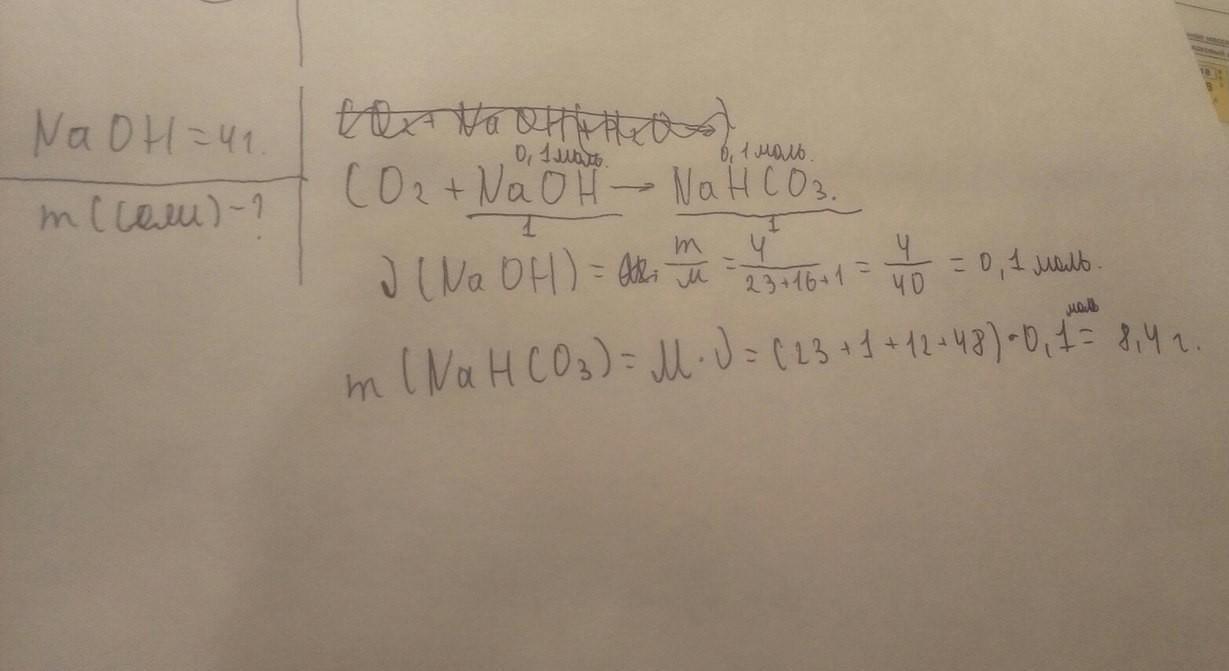 NaOH = 4г.
m(соли) - ?
CO₂ + NaOH + H₂O →
0,1 моль. 0,1 моль.
CO₂ + NaOH → NaHCO₃.
1 1
ν(NaOH) = m/M = 4/(23+16+1) = 4/40 = 0,1 моль.
m(NaHCO₃) = M · ν = (23+1+12+48) · 0,1 моль = 8,4 г.